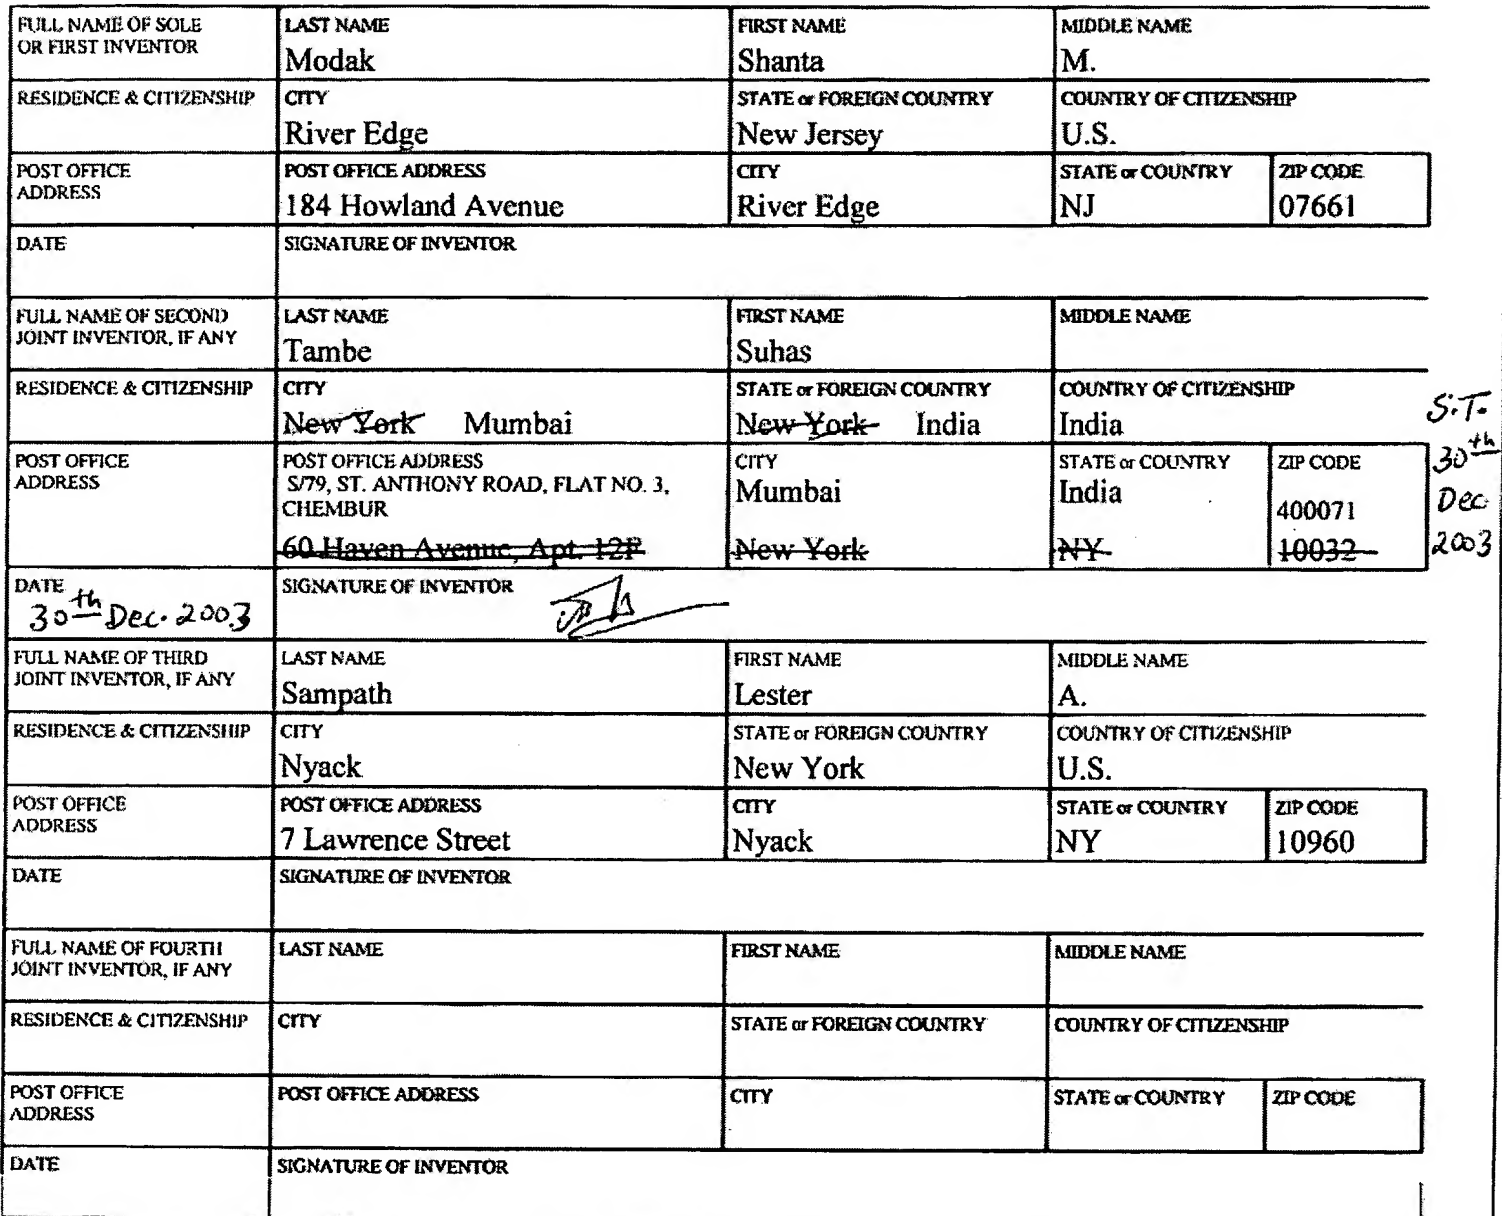 FULL NAME OF SOLE
OR FIRST INVENTOR
LAST NAME
Modak
FIRST NAME
Shanta
MIDDLE NAME
M.
RESIDENCE & CITIZENSHIP
CITY
River Edge
STATE or FOREIGN COUNTRY
New Jersey
COUNTRY OF CITIZENSHIP
U.S.
POST OFFICE
ADDRESS
POST OFFICE ADDRESS
184 Howland Avenue
CITY
River Edge
STATE or COUNTRY
NJ
ZIP CODE
07661
DATE
SIGNATURE OF INVENTOR
FULL NAME OF SECOND
JOINT INVENTOR, IF ANY
LAST NAME
Tambe
FIRST NAME
Suhas
MIDDLE NAME
RESIDENCE & CITIZENSHIP
CITY
New York Mumbai
STATE or FOREIGN COUNTRY
New York India
COUNTRY OF CITIZENSHIP
India
S.T.
30th
Dec
2003
POST OFFICE
ADDRESS
POST OFFICE ADDRESS
S/79, ST. ANTHONY ROAD, FLAT NO. 3,
CHEMBUR
60 Haven Avenue, Apt. 12F
CITY
Mumbai
New York
STATE or COUNTRY
India
NY
ZIP CODE
400071
10032
DATE
30th Dec. 2003
SIGNATURE OF INVENTOR
FULL NAME OF THIRD
JOINT INVENTOR, IF ANY
LAST NAME
Sampath
FIRST NAME
Lester
MIDDLE NAME
A.
RESIDENCE & CITIZENSHIP
CITY
Nyack
STATE or FOREIGN COUNTRY
New York
COUNTRY OF CITIZENSHIP
U.S.
POST OFFICE
ADDRESS
POST OFFICE ADDRESS
7 Lawrence Street
CITY
Nyack
STATE or COUNTRY
NY
ZIP CODE
10960
DATE
SIGNATURE OF INVENTOR
FULL NAME OF FOURTH
JOINT INVENTOR, IF ANY
LAST NAME
FIRST NAME
MIDDLE NAME
RESIDENCE & CITIZENSHIP
CITY
STATE or FOREIGN COUNTRY
COUNTRY OF CITIZENSHIP
POST OFFICE
ADDRESS
POST OFFICE ADDRESS
CITY
STATE or COUNTRY
ZIP CODE
DATE
SIGNATURE OF INVENTOR